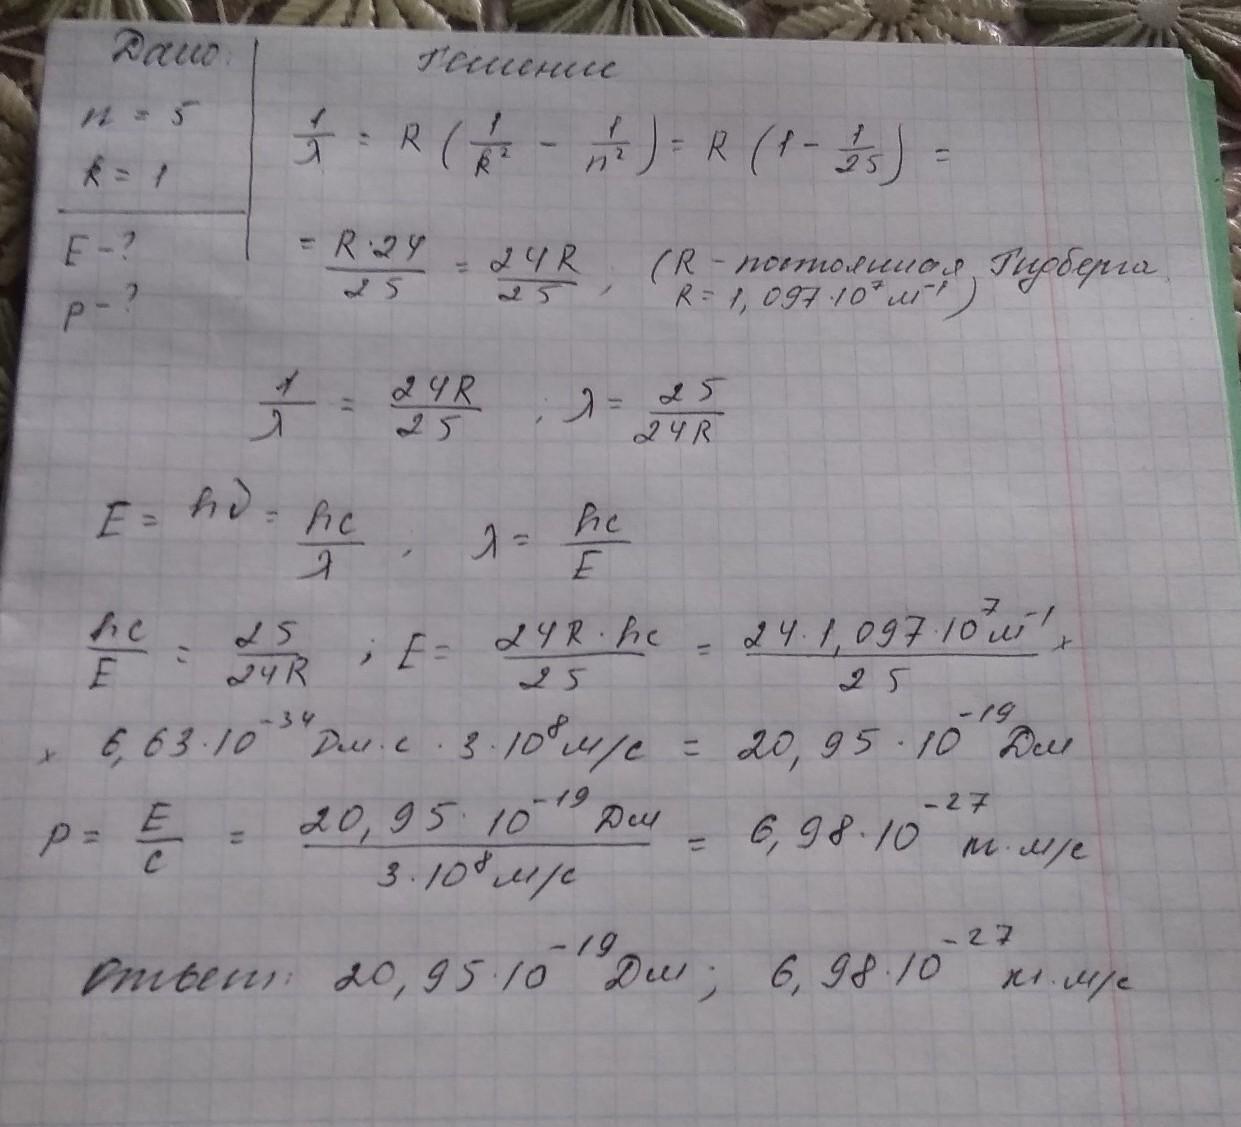 Дано: Решение
n = 5
k = 1
E - ?
p - ?
1/λ = R (1/k² - 1/n²) = R (1 - 1/25) =
= R·24/25 = 24R/25 ; (R - постоянная Ридберга,
R = 1,097·10⁷ м⁻¹)
1/λ = 24R/25 ; λ = 25/24R
E = hν = hc/λ ; λ = hc/E
hc/E = 25/24R ; E = 24R·hc/25 = 24·1,097·10⁷ м⁻¹/25 ×
× 6,63·10⁻³⁴ Дж·с · 3·10⁸ м/с = 20,95·10⁻¹⁹ Дж
p = E/c = 20,95·10⁻¹⁹ Дж/3·10⁸ м/с = 6,98·10⁻²⁷ кг·м/с
Ответ: 20,95·10⁻¹⁹ Дж; 6,98·10⁻²⁷ кг·м/с